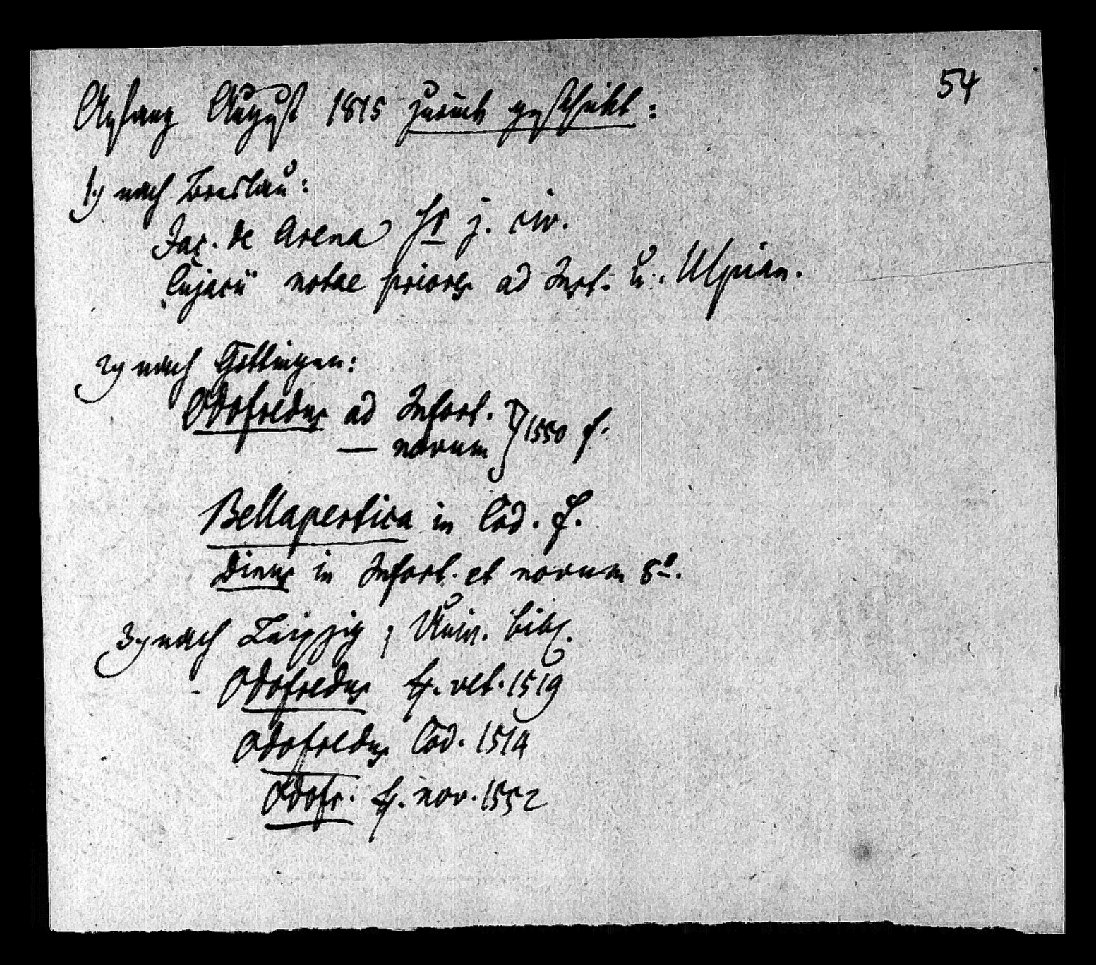 54
Anfang August 1815 zurück geschickt:
1.) nach Breslau:
Jac. de Arena j. civ.
Cujacii notae priores ad Inst. u. Ulpian.
2) nach Göttingen:
Odofredus ad Infort. } 1550 f.
— novum
Bellapertica in Cod. f.
Dinus in Infort. et novum 8º.
3) nach Leipzig, Univ. bibl.
Odofredus ff. vet. 1519
Odofredus Cod. 1514
Odofr. ff. nov. 1552